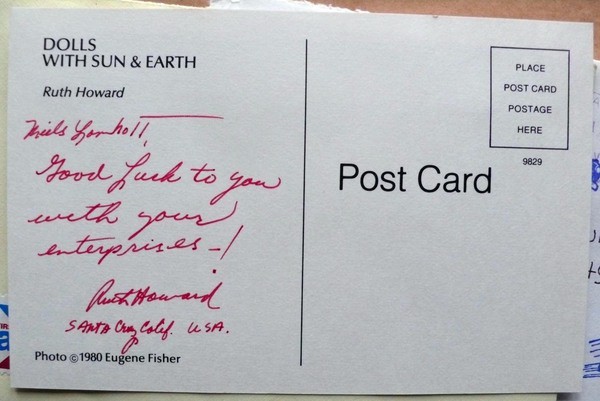 DOLLS
WITH SUN & EARTH
Ruth Howard
Niels Lomholt,
Good Luck to you
with your
enterprises -!
Ruth Howard
SANTA Cruz Calif. USA.
Photo ©1980 Eugene Fisher
PLACE
POST CARD
POSTAGE
HERE
9829
Post Card